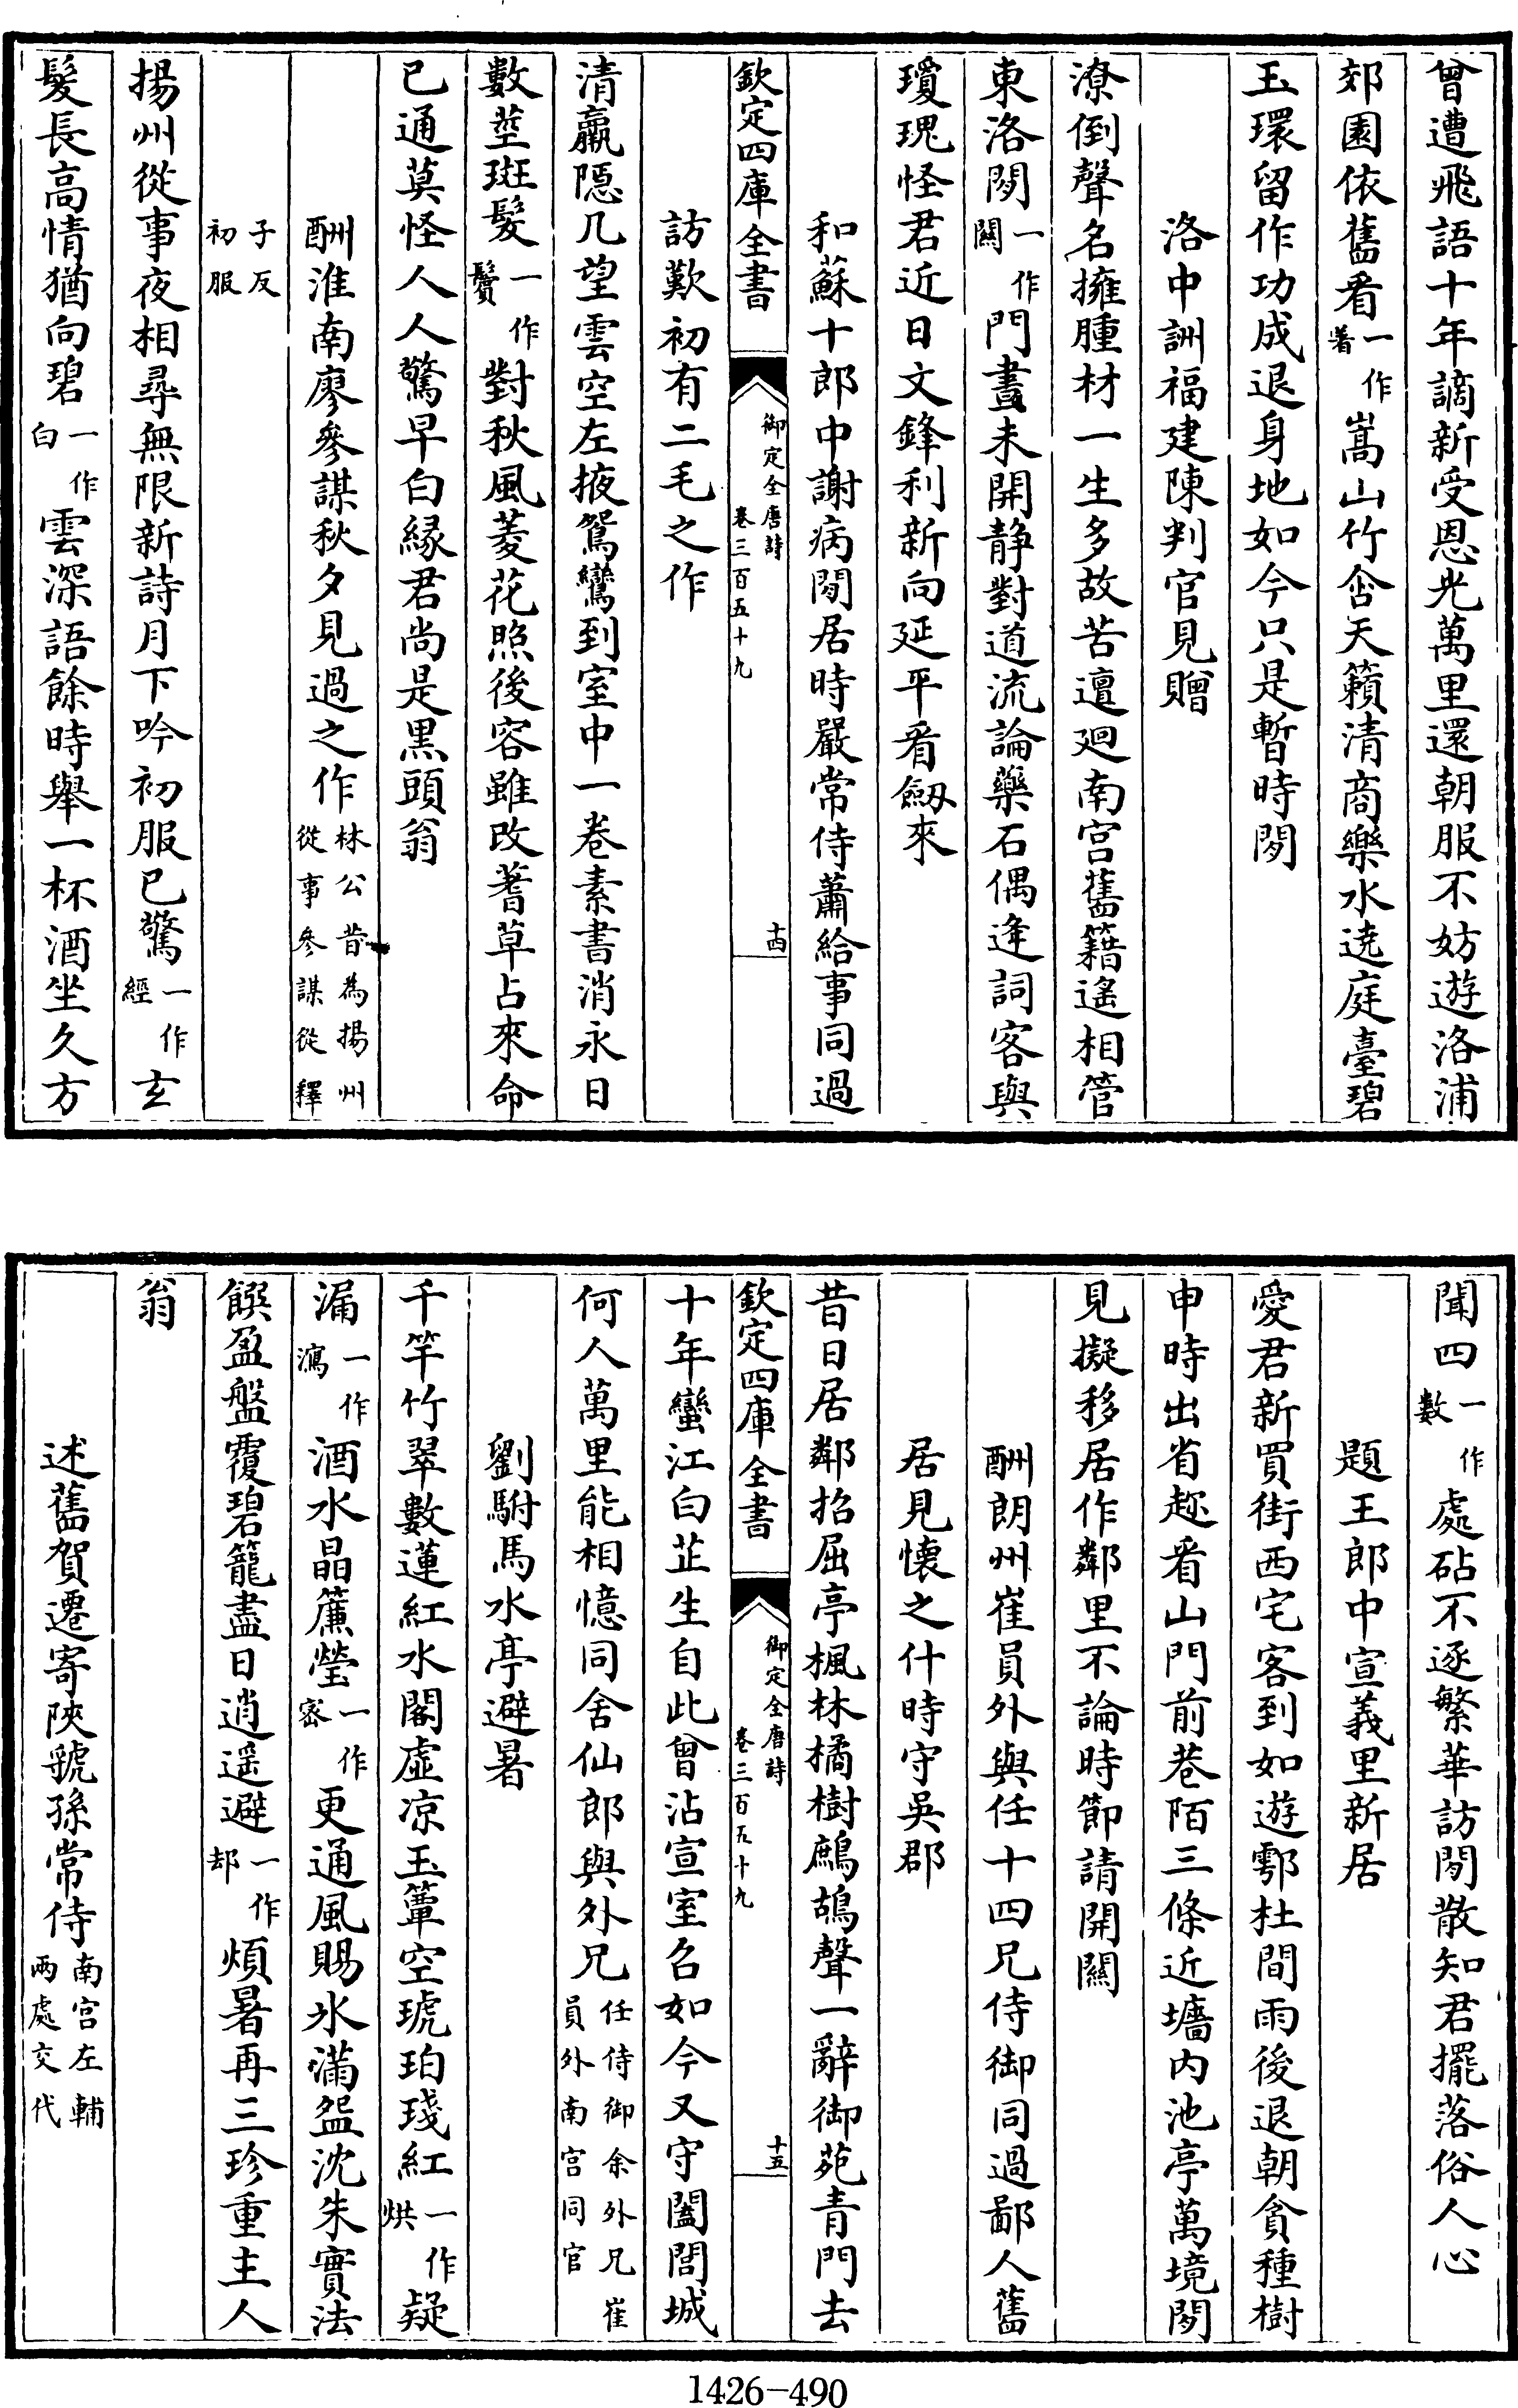 曾遭飛語十年謫新受恩光萬里還朝服不妨遊洛浦
郊園依舊看一作著嵩山竹含天籟清商樂水遶庭臺碧
玉環留作功成退身地如今只是暫時閒
洛中詶福建陳判官見贈
潦倒聲名擁腫材一生多故苦邅迴南宮舊籍遙相管
東洛閒一作關門晝未開静對道流論藥石偶逢詞客與
瓊瑰怪君近日文鋒利新向延平看劔來
和蘇十郎中謝病閒居時嚴常侍蕭給事同過
欽定四庫全書 御定全唐詩卷三百五十九 十四
訪歎初有二毛之作
清羸隠几望雲空左掖鴛鸞到室中一卷素書消永日
數莖斑髮一作鬢對秋風菱花照後容雖改蓍草占來命
已通莫怪人人驚早白縁君尚是黒頭翁
酬淮南廖參謀秋夕見過之作林公昔為揚州從事參謀從釋
子反初服
揚州從事夜相尋無限新詩月下吟初服已驚一作經玄
髮長高情猶向碧一作白雲深語餘時舉一杯酒坐久方
聞四一作數處砧不逐繁華訪閒散知君擺落俗人心
題王郎中宣義里新居
愛君新買街西宅客到如遊鄠杜間雨後退朝貪種樹
申時出省趂看山門前巷陌三條近墻内池亭萬境閒
見擬移居作鄰里不論時節請開關
酬朗州崔員外與任十四兄侍御同過鄙人舊
居見懐之什時守吳郡
昔日居鄰招屈亭楓林橘樹鷓鴣聲一辭御苑青門去
欽定四庫全書 御定全唐詩卷三百五十九 十五
十年蠻江白芷生自此曾沾宣室召如今又守闔閭城
何人萬里能相憶同舍仙郎與外兄任侍御余外兄崔員外南宮同官
劉駙馬水亭避暑
千竿竹翠數蓮紅水閣虛凉玉簟空琥珀琖紅一作烘疑
漏一作瀉酒水晶簾瑩一作宻更通風賜氷滿盌沈朱實法
饌盈盤覆碧籠盡日逍遥避一作却煩暑再三珍重主人
翁
述舊賀遷寄陜虢孫常侍南宮左輔兩處交代
1426-490